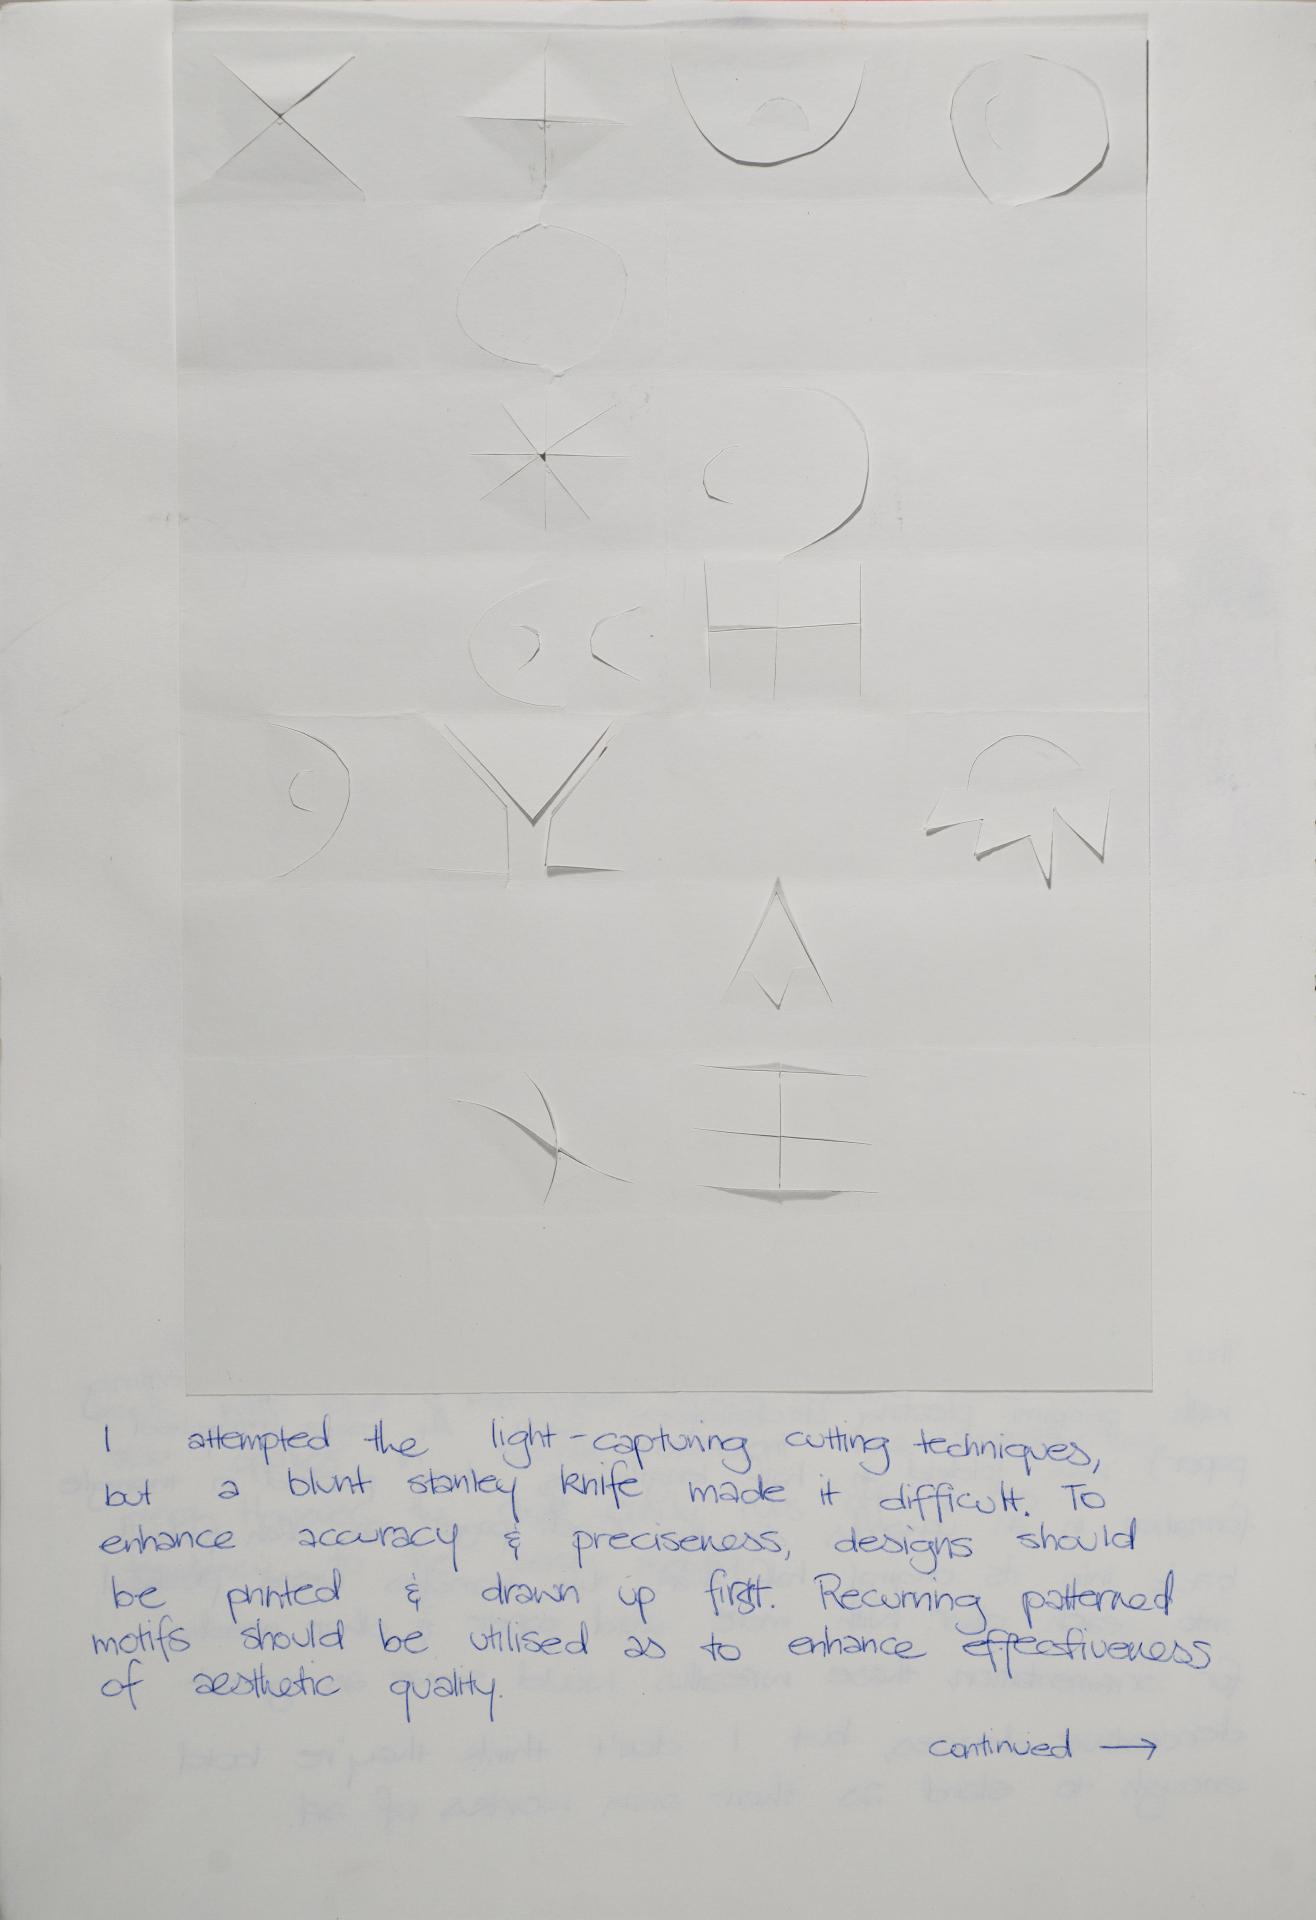 I attempted the light-capturing cutting techniques,
but a blunt stanley knife made it difficult. To
enhance accuracy & preciseness, designs should
be printed & drawn up first. Recurring patterned
motifs should be utilised as to enhance effectiveness
of aesthetic quality.
continued →